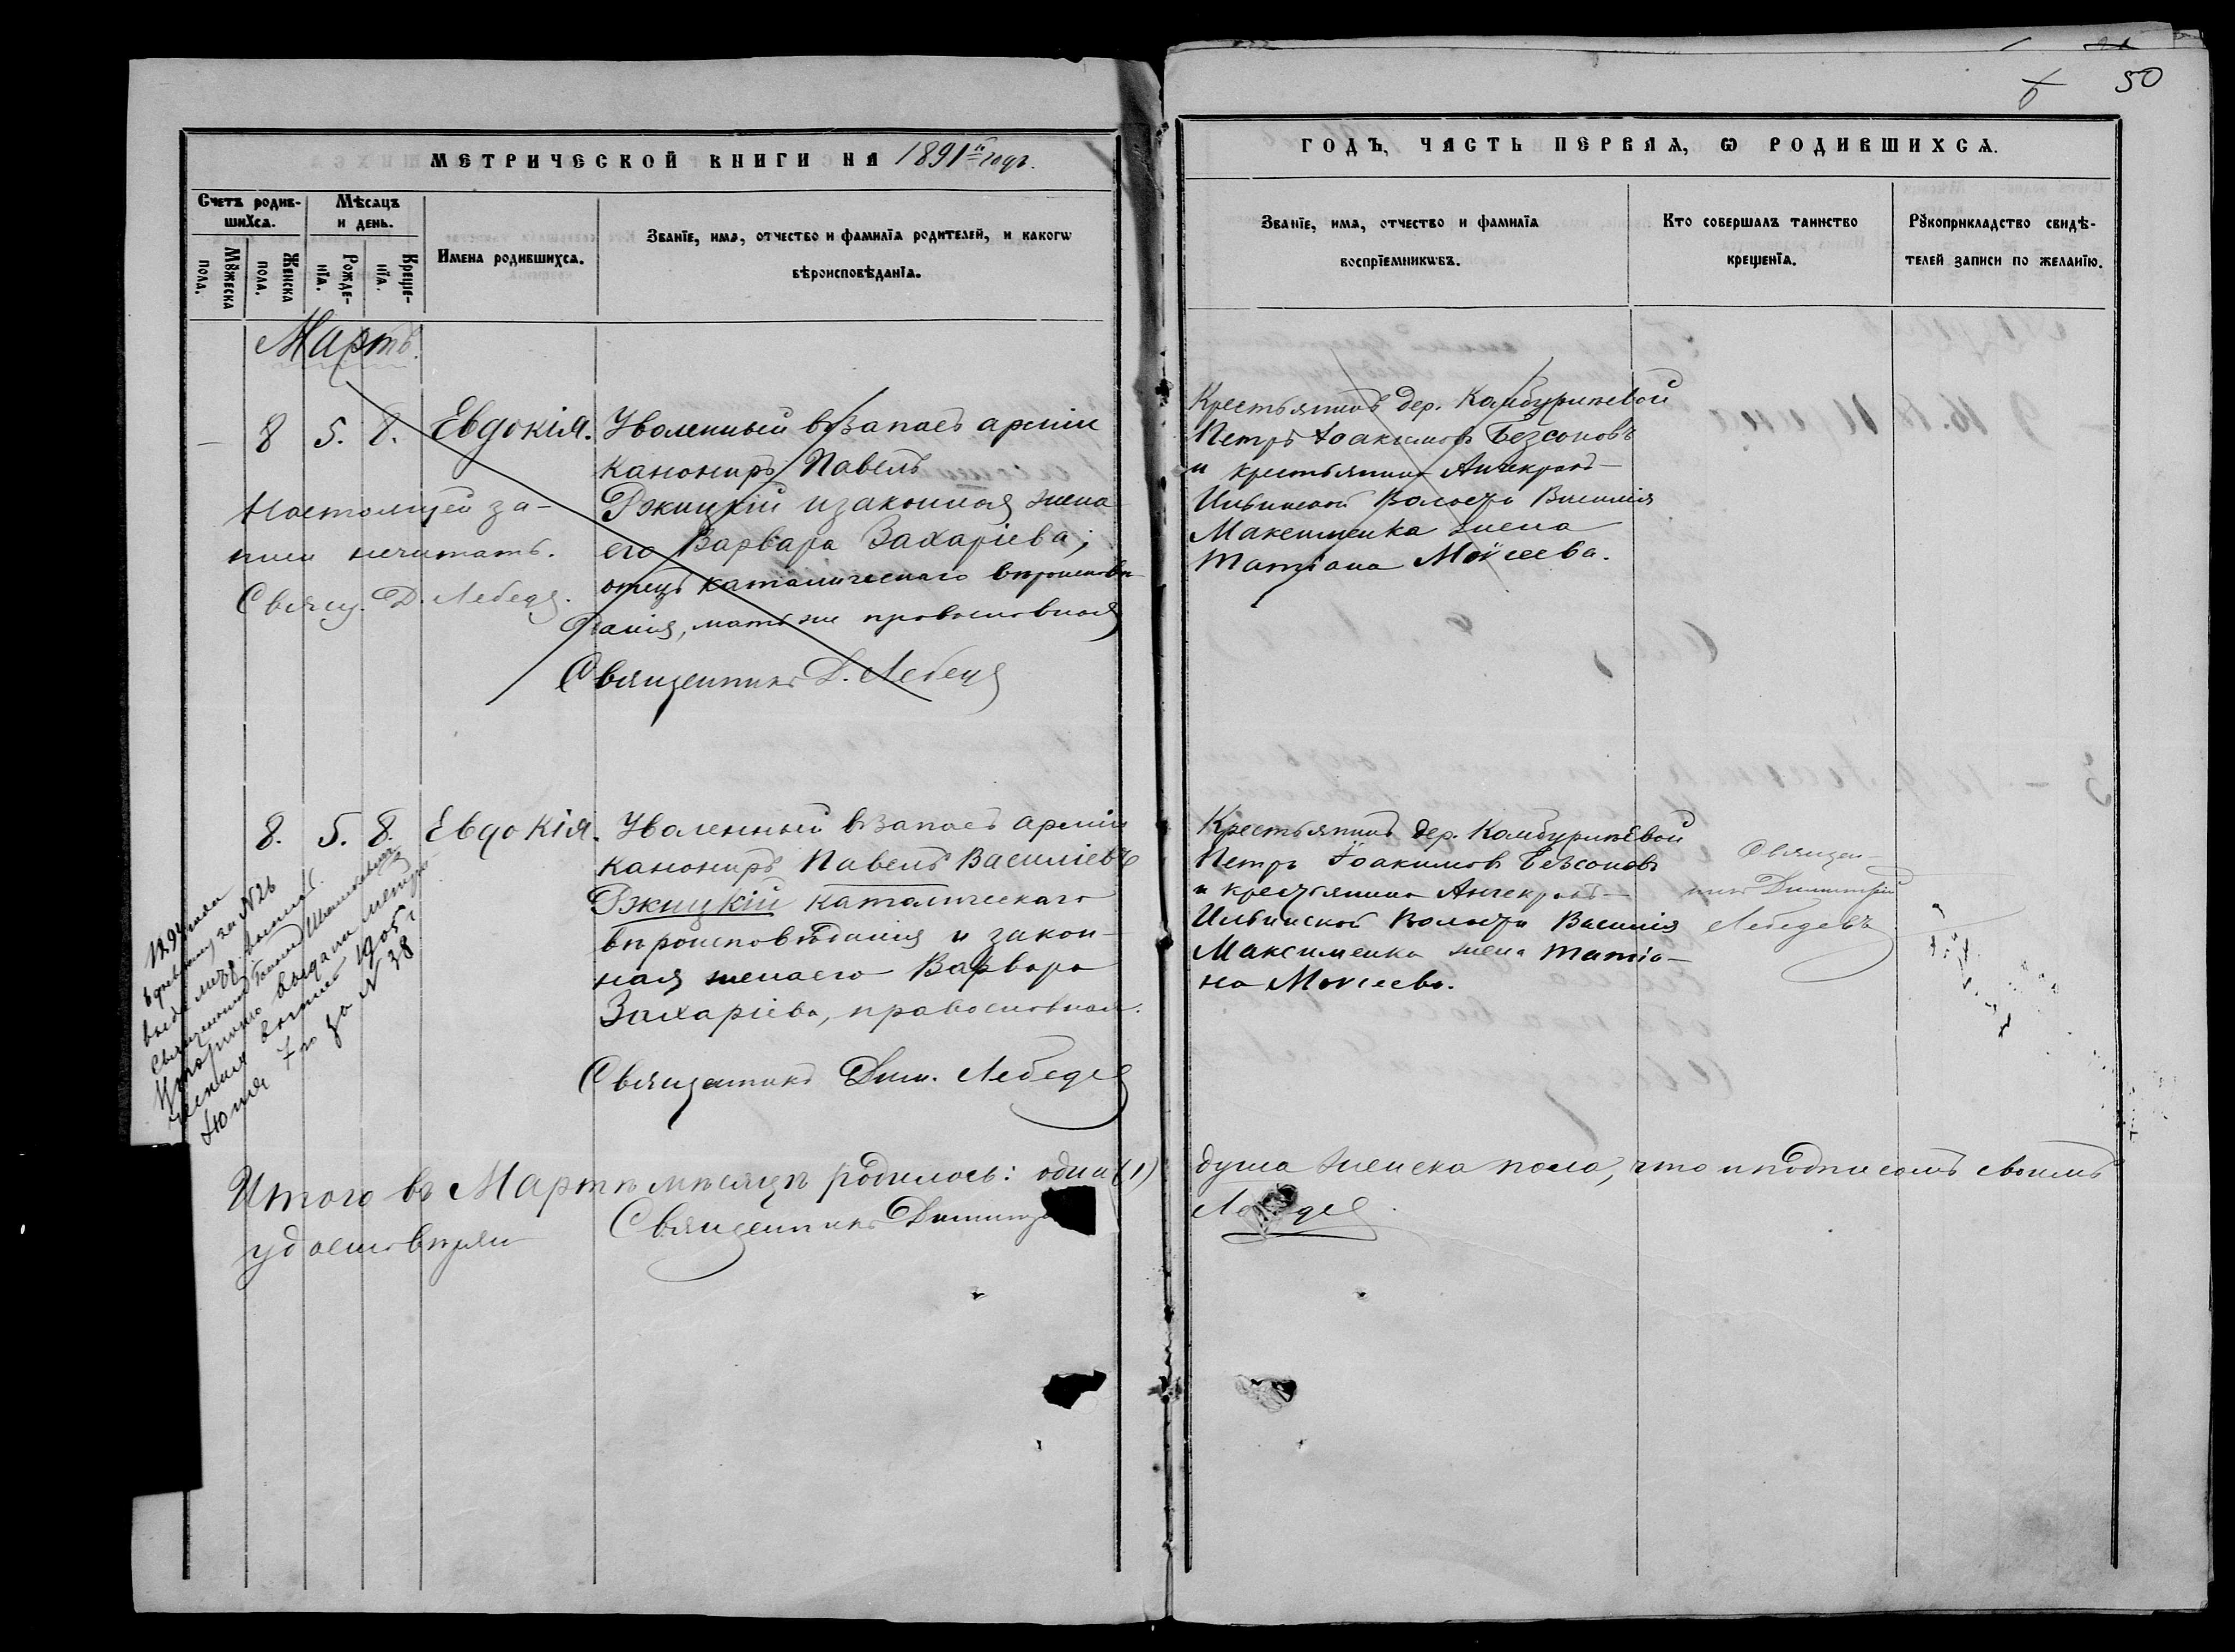 50
МЕТРИЧЕСКОЙ КНИГИ НА 1891й годъ.
ГОДЪ, ЧАСТЬ ПЕРВАѦ, Ѡ РОДИВШИХСѦ.
Счетъ родив-
шихсѧ.
Мѣсѧцъ
и день.
Мꙋжеска
пола.
Женска
пола.
Рожде-
нїѧ.
Креще-
нїѧ.
Имена родившихсѧ.
Званїе, имѧ, отчество и фамилїѧ родителей, и какогѡ
вѣроисповѣданїѧ.
Званїе, имѧ, отчество и фамилїѧ
воспрїемникѡвъ.
Кто совершалъ таинство
крещенїѧ.
Рꙋкоприкладство свидѣ-
телей записи по желанїю.
Мартъ.
— 8 5. 8. Евдокія.
Уволенный въ Запасъ арміи
канониръ Павелъ
Ржицкій и законная жена
его Варвара Захаріева;
отецъ католическаго вѣроисповѣ-
данія, мать же православная
Священникъ Д. Лебедев
Настоящей за-
писи нечитать.
Свящ. Д. Лебедев.
Крестьянинъ дер. Камбуриневой
Петръ Іоакимовъ Безсоновъ
и крестьянина Анчекрак-
Ильинской Волости Василія
Максименка жена
Татіана Моѵсеева.
8. 5. 8. Евдокія.
Уволенный въ Запасъ арміи
канониръ Павелъ Василіевъ
Ржицкій католическаго
вѣроисповѣданія и закон-
ная жена его Варвара
Захаріева, православная.
Священникъ Дим. Лебедев
Крестьянинъ дер. Камбуриневой
Петръ Іоакимовъ Безсоновъ
и крестьянина Анчекрак-
Ильинской Волости Василія
Максименка жена Татіа-
на Моисеева.
Священ-
никъ Димитрій
Лебедевъ
за №26
Священникъ
выдана метри-
1905 г
Юния 7го за № 38
Итого въ Мартѣ мѣсяцѣ родилось: одна (1) душа женска пола, что и подписомъ своимъ
удостовѣряю Священникъ Димитр